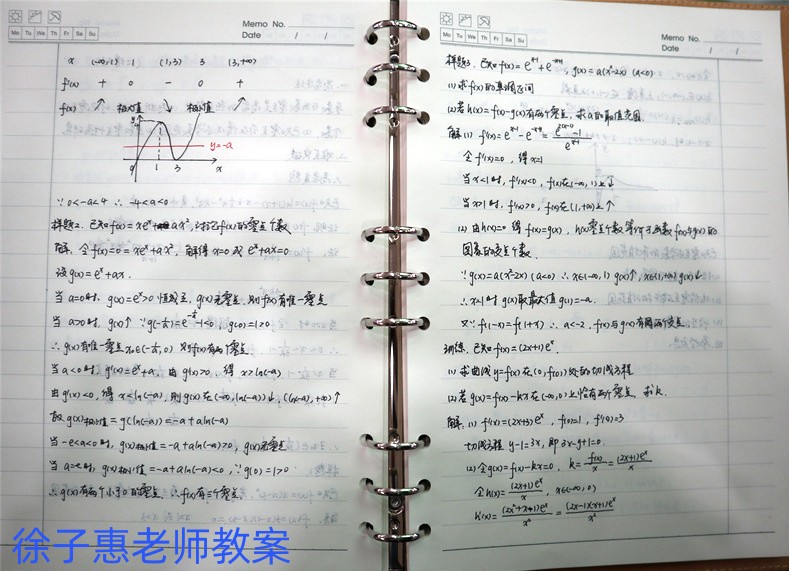 Memo No.
Date / /
Mo Tu We Th Fr Sa Su
x (-∞,1) 1 (1,3) 3 (3,+∞)
f'(x) + 0 - 0 +
f(x) ↗ 极大值 ↘ 极小值 ↗
y
y=-a
0 1 3 x
∵ 0<-a<4 ∴ -4<a<0
样题2. 已知f(x)=xeˣ+ax², 讨论f(x)的零点个数
解: 令f(x)=0=xeˣ+ax², 解得x=0或eˣ+ax=0
设g(x)=eˣ+ax.
当a=0时, g(x)=eˣ>0恒成立, g(x)无零点, 则f(x)有唯一零点
当a>0时, g(x)↑ ∵g(-1/a)=e^(-1/a)-1<0, g(0)=1>0
∴g(x)有唯一零点x₀∈(-1/a,0) 则f(x)有两个零点.
当a<0时, g'(x)=eˣ+a, 由g'(x)>0, 得x>ln(-a)
由g'(x)<0, 得x<ln(-a), 则g(x)在(-∞,ln(-a))↓, (ln(-a),+∞)↑
故g(x)极小值=g(ln(-a))=-a+aln(-a)
当-e<a<0时, g(x)极小值=-a+aln(-a)>0, g(x)无零点
g(x)极小值=-a+aln(-a)<0, ∵g(0)=1>0
∴g(x)有两个小于0的零点 ∴f(x)有三个零点.
徐子惠老师教案
Memo No.
Date / /
Mo Tu We Th Fr Sa Su
样题3. 已知f(x)=e^(x-1)+e^(-x+1), g(x)=a(x²-2x) (a<0)
(1) 求f(x)的单调区间
(2) 若h(x)=f(x)-g(x)有两个零点, 求a的取值范围
解: (1) f'(x)=e^(x-1)-e^(-x+1)=(e^(2(x-1))-1)/e^(x-1)
令f'(x)=0, 得x=1
当x<1时, f'(x)<0, f(x)在(-∞,1)上↓
当x>1时, f'(x)>0, f(x)在(1,+∞)上↑
(2) 由h(x)=0 得f(x)=g(x), h(x)零点个数等价于函数f(x)与g(x)的
图象的交点个数.
∵g(x)=a(x²-2x) (a<0) ∴x∈(-∞,1) g(x)↑, x∈(1,+∞) g(x)↓
∴x=1时 g(x)取最大值g(1)=-a.
又∵f(1-x)=f(1+x) ∴a<-2, f(x)与g(x)有两个交点
训练. 已知f(x)=(2x+1)eˣ
(1) 求曲线y=f(x)在(0,f(0))处的切线方程
(2) 若g(x)=f(x)-kx在(-∞,0)上恰有两个零点, 求k.
解: (1) f'(x)=(2x+3)eˣ, f(0)=1, f'(0)=3
切线方程 y-1=3x, 即3x-y+1=0.
(2) 令g(x)=f(x)-kx=0, k=f(x)/x=(2x+1)eˣ/x
令h(x)=(2x+1)eˣ/x, x∈(-∞,0)
h'(x)=(2x²+x-1)eˣ/x²=(2x-1)(x+1)eˣ/x²